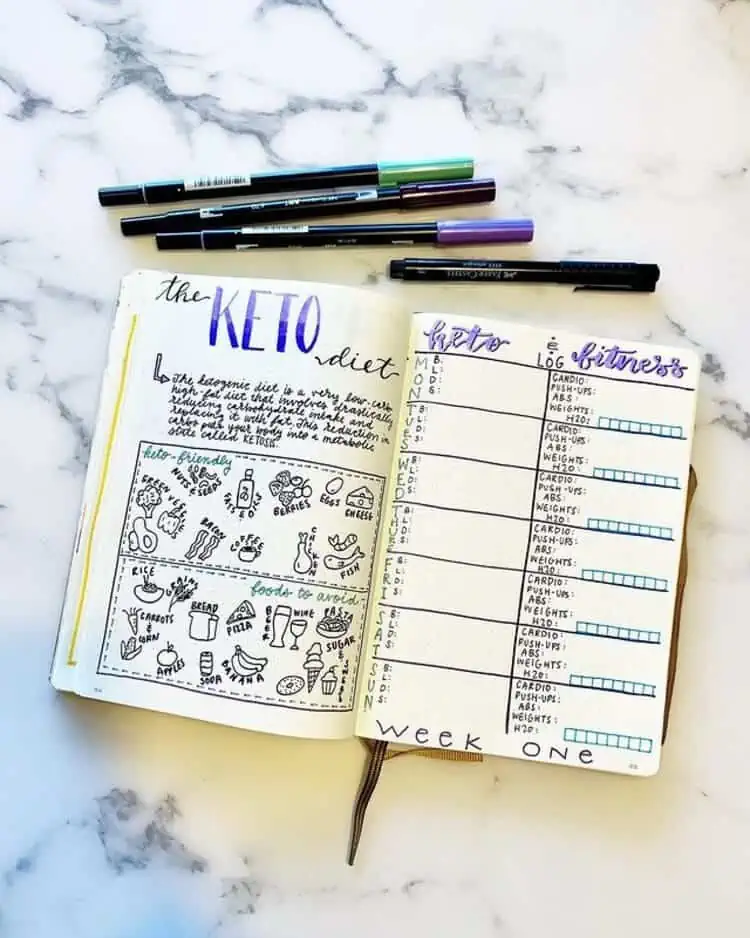 the
KETO
diet
The ketogenic diet is a very low-carb
high-fat diet that involves drastically
reducing carbohydrate intake and
replacing it with fat. This reduction in
carbs puts your body into a metabolic
state called KETOSIS.
keto-friendly
NUTS & SEEDS
FATS & OILS
BERRIES
EGGS
CHEESE
GREEN VEG
BACON
COFFEE
CHICKEN
FISH
foods to avoid
RICE
& GRAINS
BREAD
PIZZA
BEER
WINE
PASTA
CARROTS
& CORN
APPLES
SODA
BANANA
SUGAR
& SWEETS
keto
&
LOG
fitness
MON
B:
L:
D:
S:
CARDIO:
PUSH-UPS:
ABS:
WEIGHTS:
H2O:
TUES
B:
L:
D:
S:
CARDIO:
PUSH-UPS:
ABS:
WEIGHTS:
H2O:
WED
B:
L:
D:
S:
CARDIO:
PUSH-UPS:
ABS:
WEIGHTS:
H2O:
THURS
B:
L:
D:
S:
CARDIO:
PUSH-UPS:
ABS:
WEIGHTS:
H2O:
FRI
B:
L:
D:
S:
CARDIO:
PUSH-UPS:
ABS:
WEIGHTS:
H2O:
SAT
B:
L:
D:
S:
CARDIO:
PUSH-UPS:
ABS:
WEIGHTS:
H2O:
SUN
B:
L:
D:
S:
CARDIO:
PUSH-UPS:
ABS:
WEIGHTS:
H2O:
week one